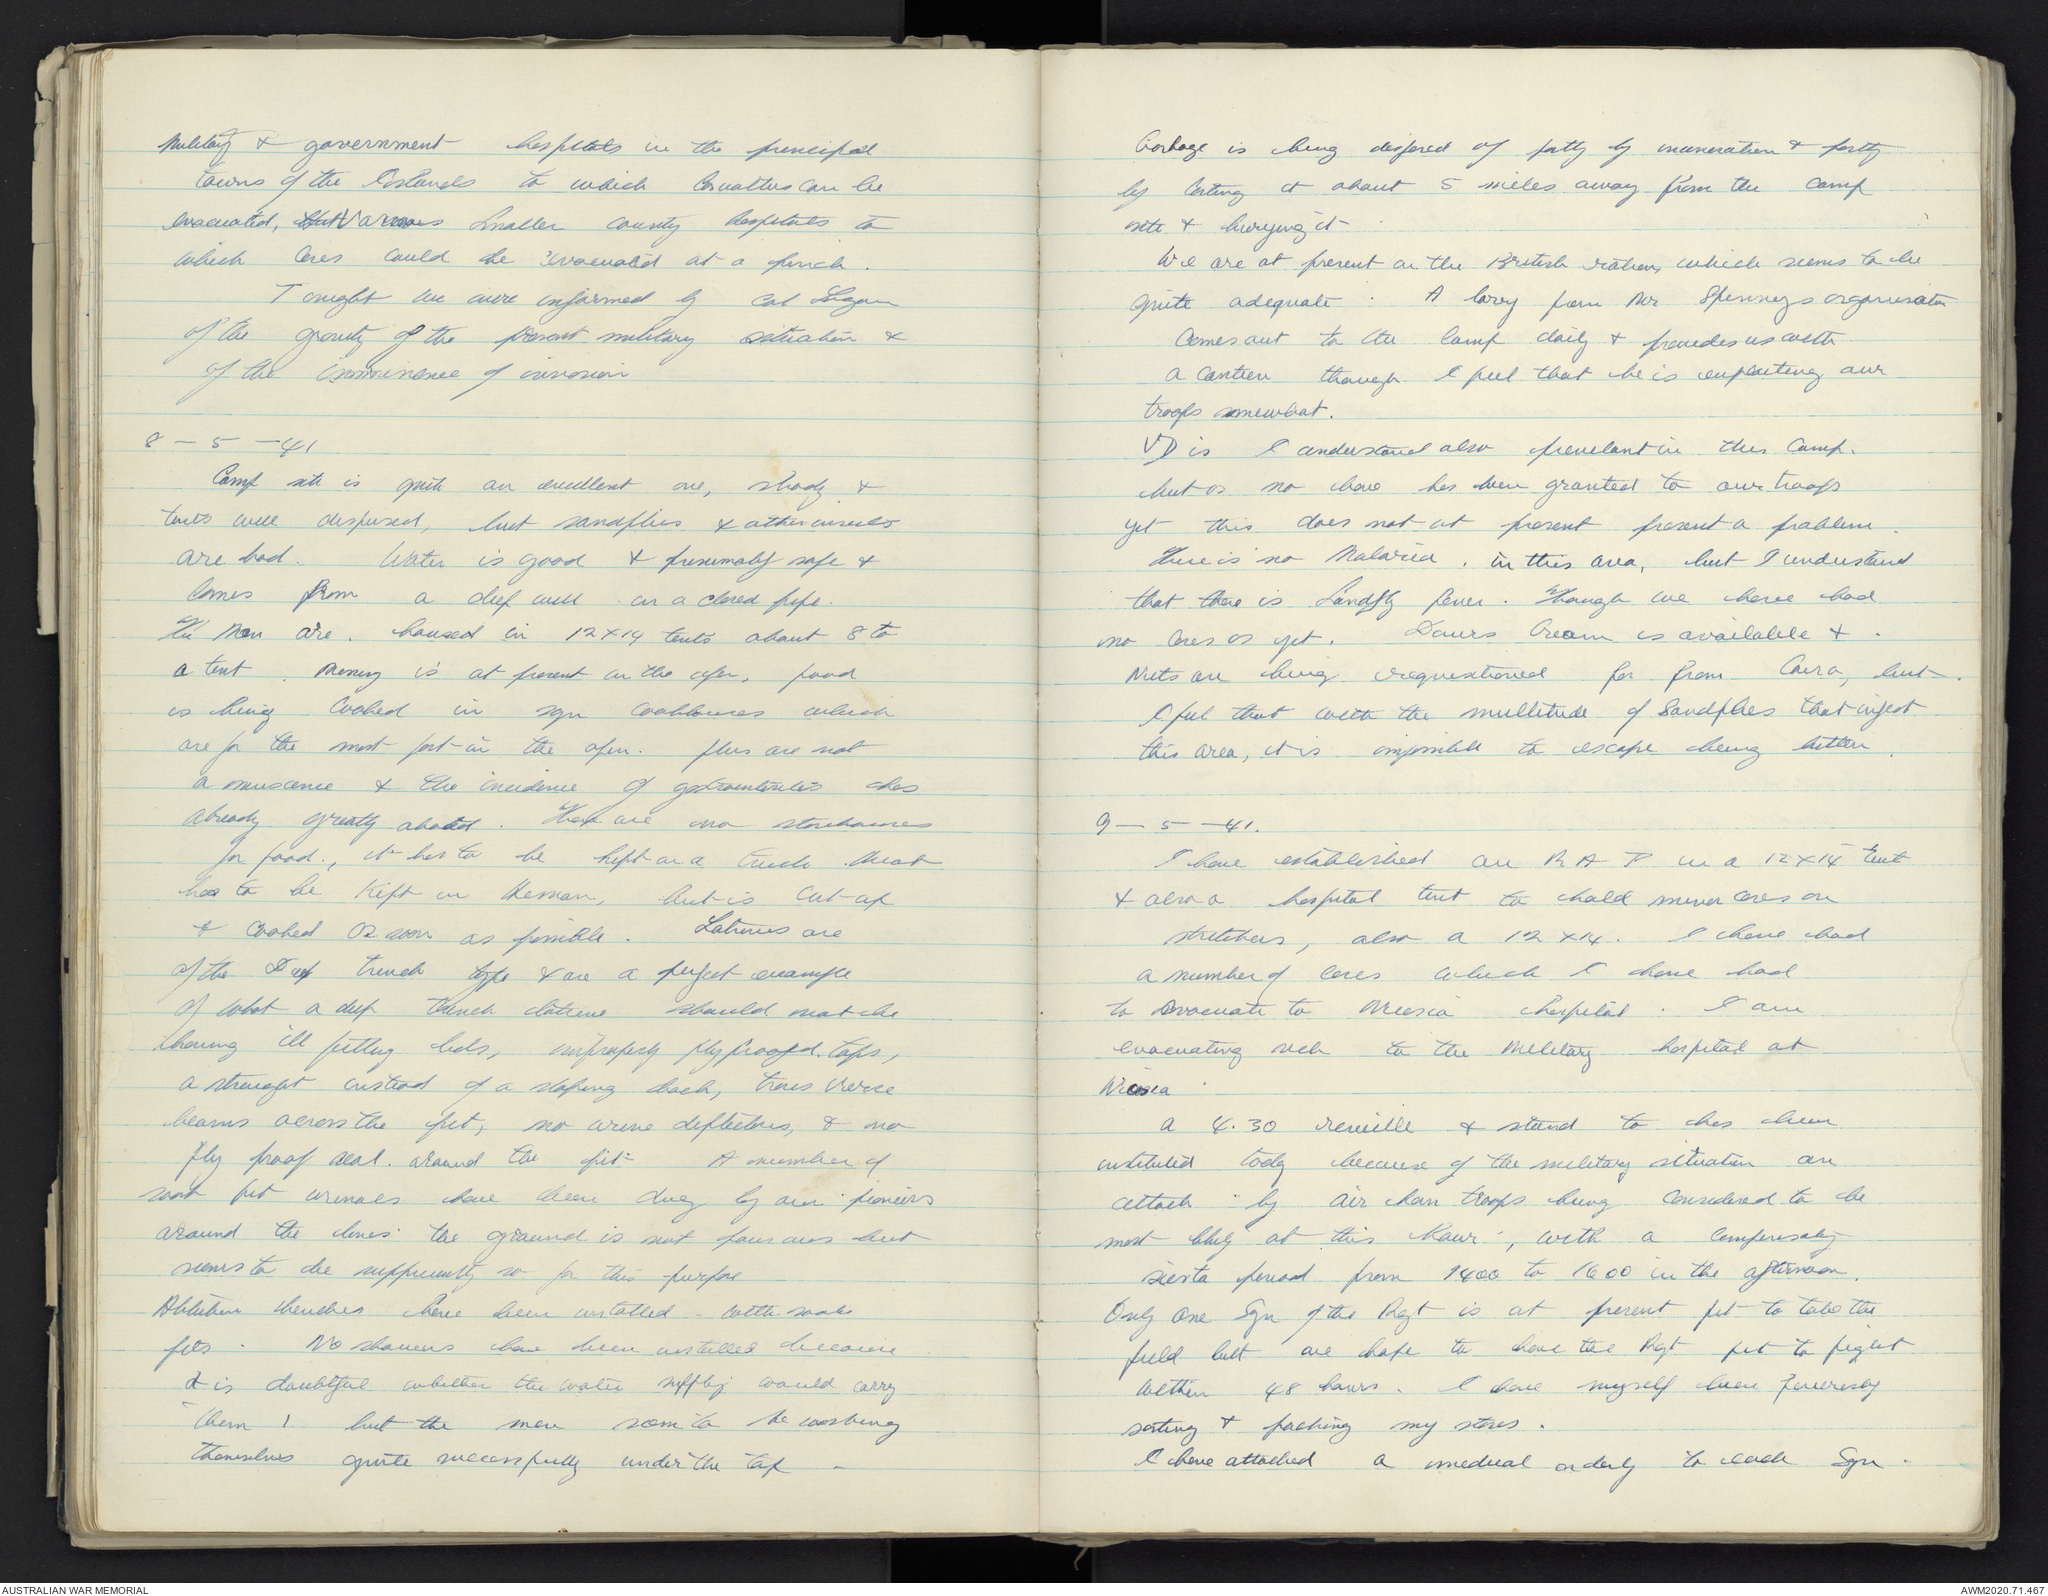 Military & government hospitals in the principal
towns of the Islands to which Casualties can be
evacuated, Various smaller county hospitals to
which Cases could be evacuated at a pinch.
Tonight we were informed by Col
of the gravity of the present military situation &
of the imminence of invasion
8 - 5 - 41
Camp site is quite an excellent one, shady &
tents well dispersed, but sandflies & other insects
are bad. Water is good & presumably safe &
Comes from a deep well in a closed pipe.
The Men are housed in 12x14 tents about 8 to
a tent. Messing is at present in the open, food
is being Cooked in sqn cookhouses which
are for the most part in the open. flies are not
a nuiscence & the incidence of gastroenteritis has
already greatly abated. There are no storehouses
for food., it has to be kept on a truck. Meat
has to be Kept in Hessian, but is Cut up
& Cooked as soon as possible. Latrines are
of the Deep trench type & are a perfect example
of what a deep trench latrine should not be
having ill fitting lids, improperly flyproofed tops,
a straight instead of a sloping back, trans verse
beams across the pit, no urine deflectors, & no
fly proof seal around the pit. A number of
soak pit urinals have been dug by our pioneers
around the lines the ground is not porous but
seems to be sufficiently so for this purpose
Ablution benches have been installed with soak
pits. No showers have been installed because
it is doubtful whether the water supply would carry
them, but the men seem to be washing
themselves quite successfully under the tap -
Garbage is being disposed of partly by incineration & partly
by carting it about 5 miles away from the camp
site & burying it
We are at present on the British rations, which seems to be
quite adequate. A lorry from Mr Spinneys organisation
Comes out to the Camp daily & provides us with
a canteen though I feel that he is exploiting our
troops somewhat.
VD is I understand also prevelant in this Camp.
but as no leave has been granted to our troops
yet this does not at present present a problem.
There is no Malaria in this area, but I understand
that there is Sandfly fever. Though we have had
no Cases as yet. Cream is available &
Nets are being requisitioned for from Cairo, but
I feel that with the mulltitude of Sandflies that infest
this area, it is impossible to escape being bitten.
9 - 5 - 41.
I have established an R A P in a 12x14 tent
& also a hospital tent to hold minor cases on
stretchers, also a 12x14. I have had
a number of Cases which I have had
to Evacuate to Nicosia hospital. I am
evacuating sick to the Military hospital at
Nicosia
a 4.30 reveille & stand to has been
instituted today because of the military situation an
attack by air bourn troops being considered to be
most likely at this hour, with a compensatory
siesta period from 1400 to 1600 in the afternoon.
Only one Sqn of the Rgt is at present fit to take the
field but we hope to have the Rgt fit to fight
Within 48 hours. I have myself been feverishly
sorting & packing my stores.
I have attached a medical orderly to each Sqn.
AUSTRALIAN WAR MEMORIAL
AWM2020.71.467